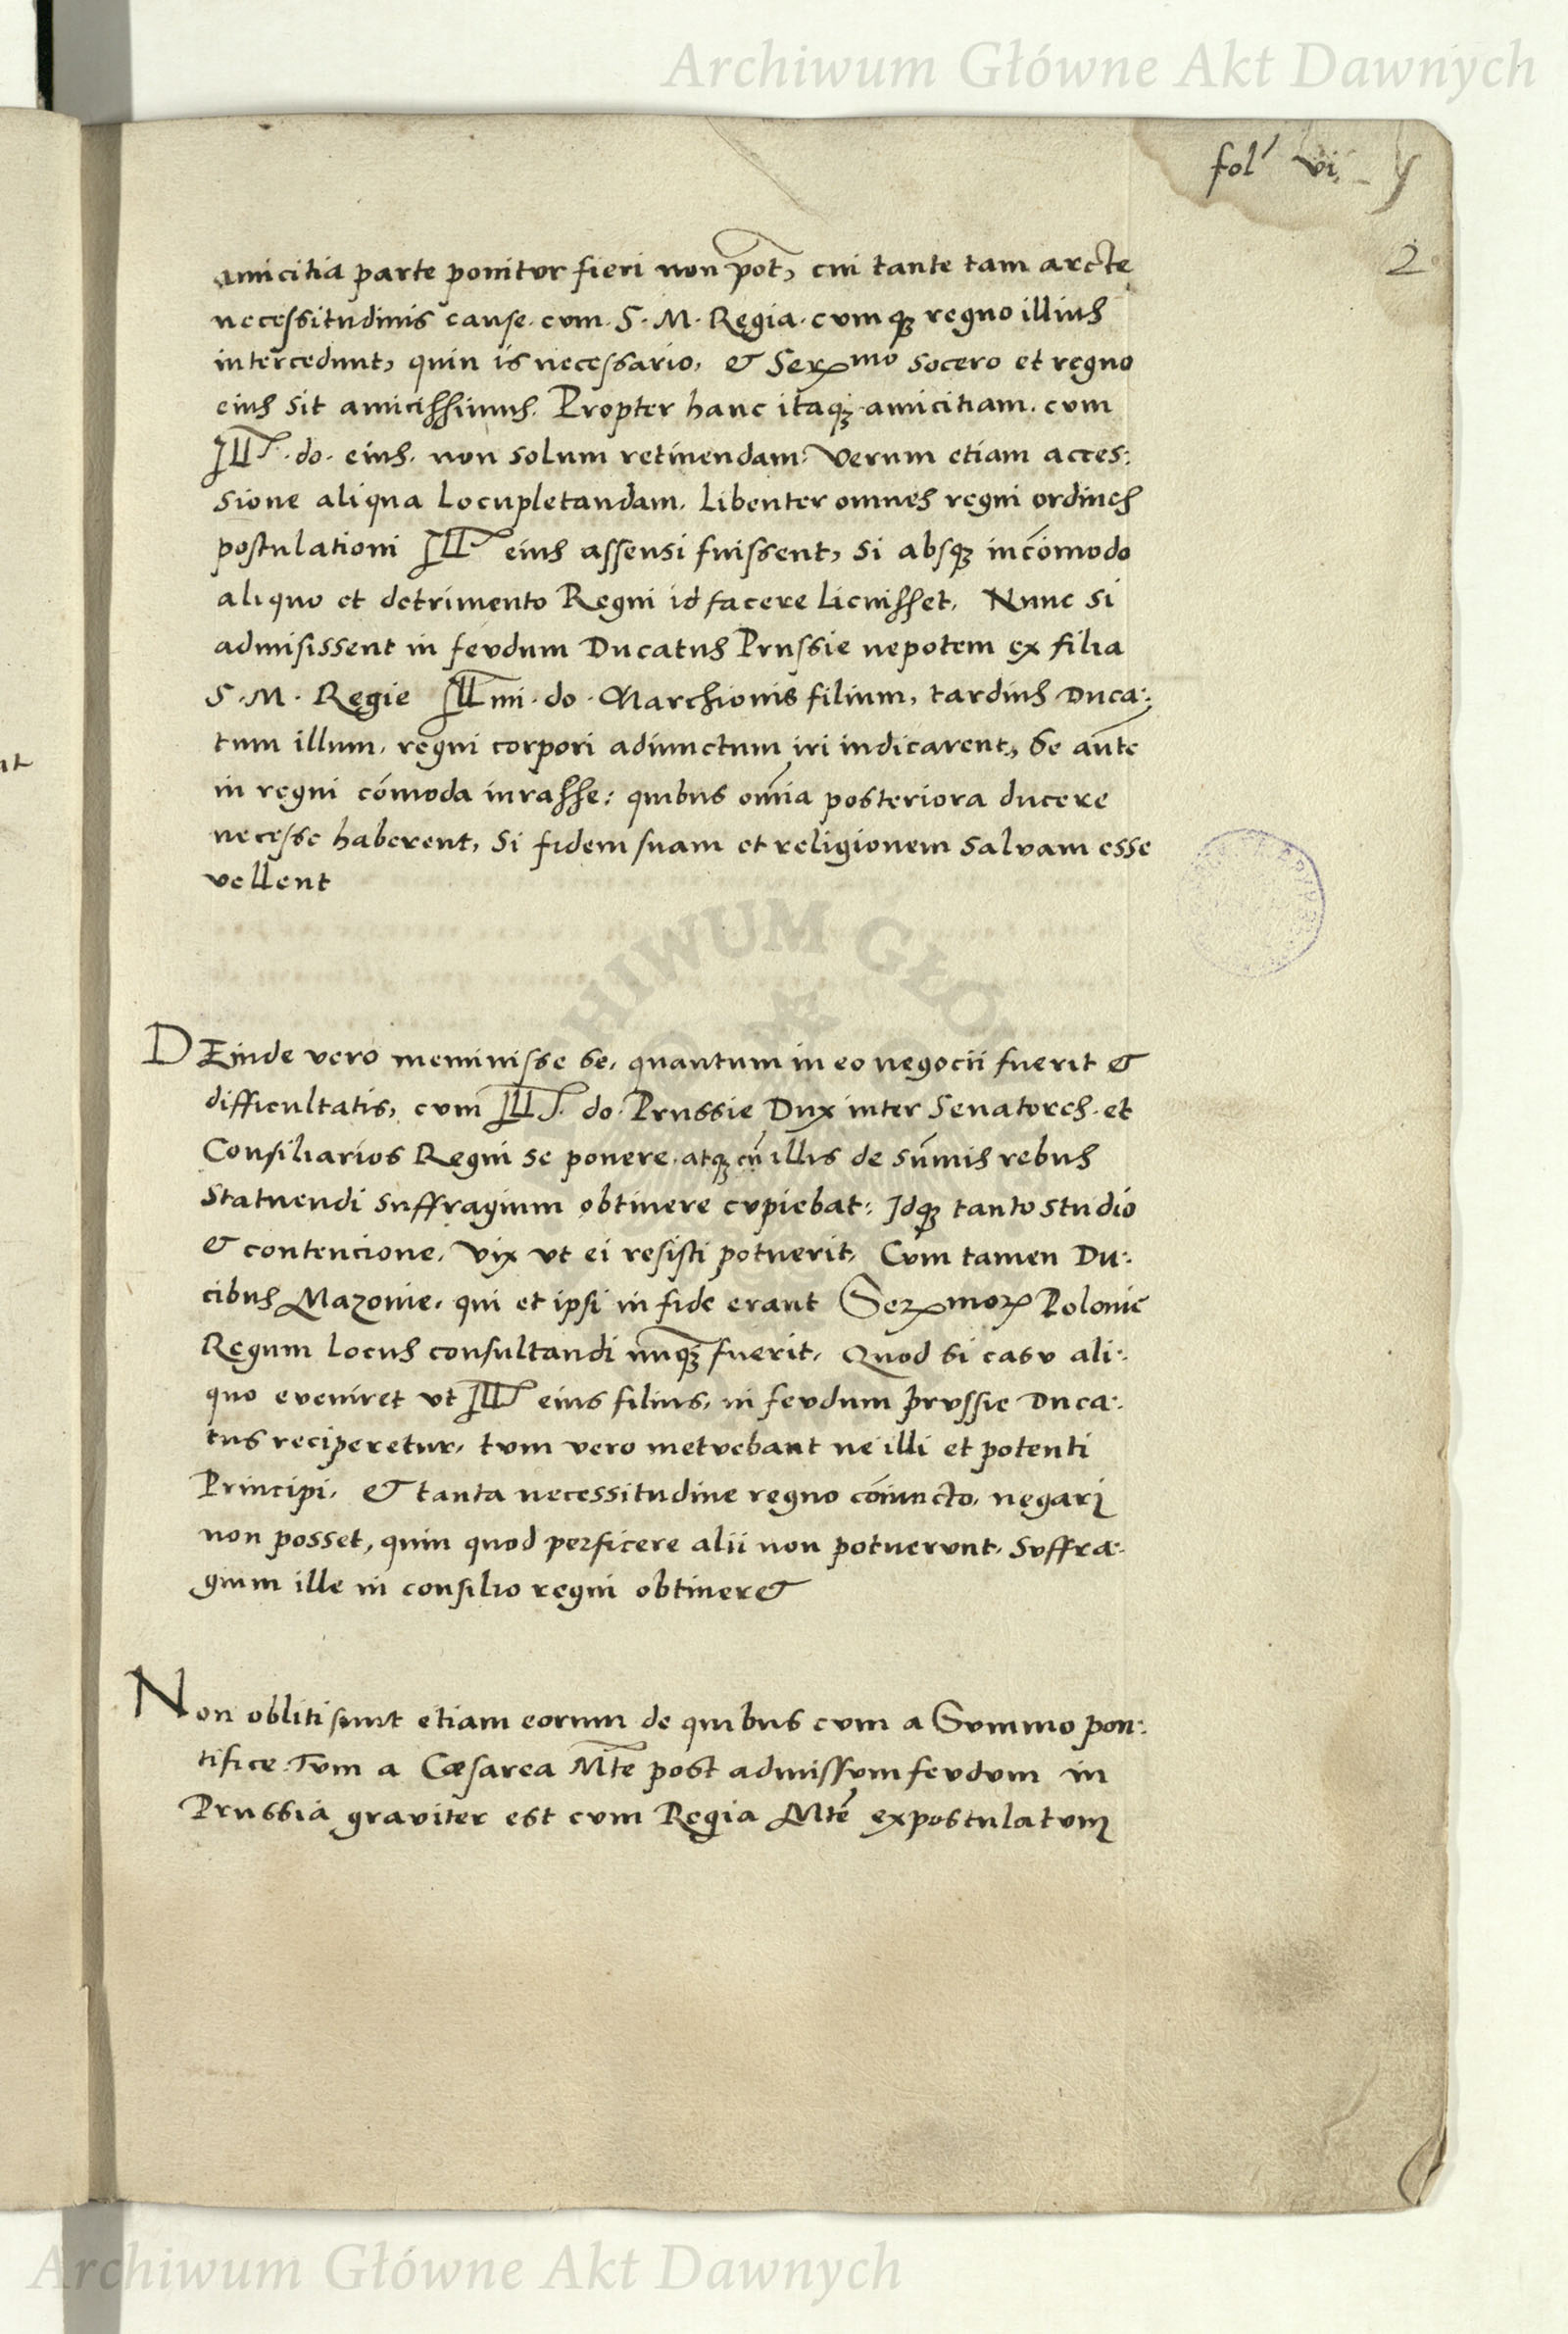 Archiwum Główne Akt Dawnych
fol' vi.
2
amicitia parte ponitur fieri non pot, cui tante tam arcte
necessitudinis cause. cum. S. M. Regia. cumq regno illius
intercedunt, quin is necessario, & Sermo socero et regno
eius sit amicissimus. Propter hanc itaq amicitiam. cum
Ill. do. eius. non solum retinendam: Verum etiam acces:
sione aliqua Locupletandam. Libenter omnes regni ordines
postulationi Ill eius assensi fuissent, si absq incōmodo
aliquo et detrimento Regni id facere Licuisset. Nunc si
admisissent in feudum Ducatus Prussie nepotem ex filia
S. M. Regie Illmi. do. Marchionis filium, tardius Duca:
tum illum, regni corpori adiunctum iri indicarent, Se aute
in regni cōmoda iurasse: quibus omīa posteriora ducere
necesse haberent, Si fidem suam et religionem salvam esse
vellent
DEinde vero meminisse se, quantum in eo negocii fuerit &
difficultatis, cum Ill. do. Prussie Dux inter Senatores. et
Consiliarios Regni se ponere. atq cū illis de sūmis rebus
statuendi suffragium obtinere cupiebat: Idq tanto studio
& contencione, Vix ut ei resisti potuerit, Cum tamen Du:
cibus Mazovie, qui et ipsi in fide erant Sermor Polonie
Regum Locus consultandi nūq fuerit. Quod si casu ali:
quo eveniret ut Ill eius filius, in feudum prussie Duca:
tus reciperetur, tum vero metuebant ne illi et potenti
Principi, & tanta necessitudine regno cōiuncto, negari
non posset, quin quod perficere alii non potuerunt, Suffra:
gium ille in consilio regni obtiner&
Non obliti sunt etiam eorum de quibus cum a Summo pon:
tifice. Tum a Cæsarea Mte post admissum feudum in
Prussia graviter est cum Regia Mte expostulatum
Archiwum Główne Akt Dawnych